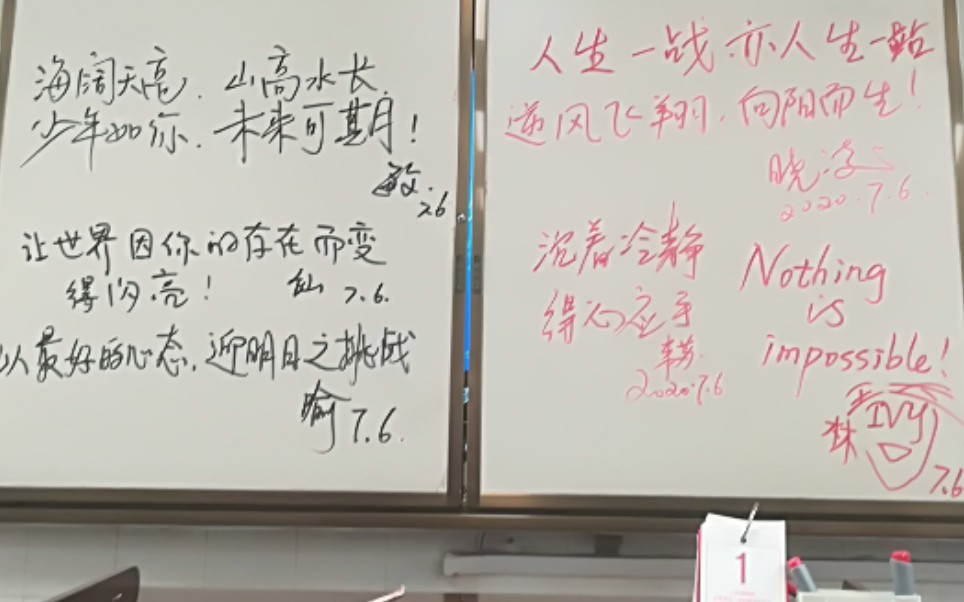 海阔天亮、山高水长
少年如你、未来可期！
敏
7.6
让世界因你的存在而变
得闪亮！
7.6.
以最好的心态,迎明日之挑战
瑜 7.6.
人生一战亦人生一站
逆风飞翔,向阳而生！
晓凌
2020.7.6.
沉着冷静
得心应手
2020.7.6
Nothing
is
impossible!
IVY
7.6
1